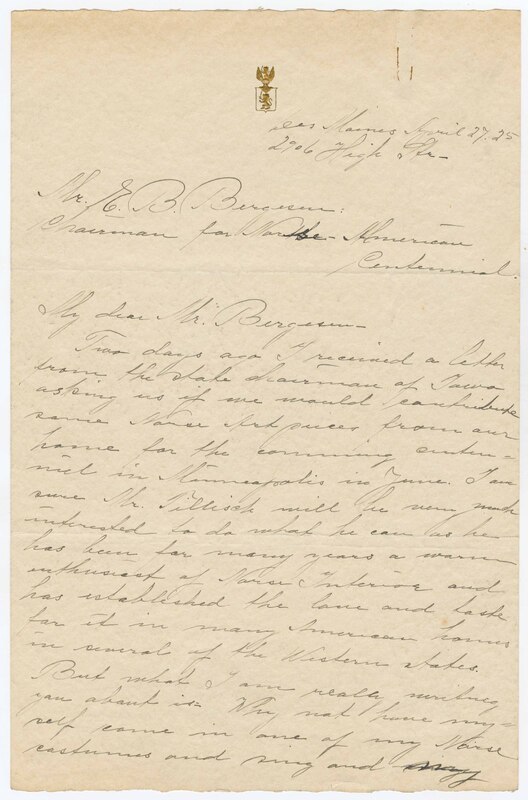 Des Moines April 27. 25
2906 High Str-
Mr. E. B. Bergesen:
Chairman for Norse-American
Centennial.
My dear Mr. Bergesen-
Two days ago I received a letter
from the state chairman of Iowa
asking us if we would contribute
some Norse Art pieces from our
home for the comming centen-
niel in Minneapolis in June. I am
sure Mr. Tillisch will be very much
interested to do what he can as he
has been for many years a warm
enthusiast of Norse Interior and
has established the love and taste
for it in many American homes
in several of the Western states.
But what I am really writing
you about is- Why not have my-
self come in one of my Norse
costumes and sing and